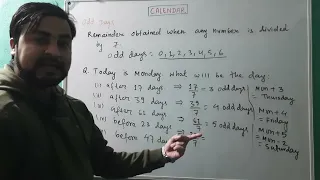 CALENDAR
Odd Days
Remainder obtained when any number is divided
by 7.
odd days = 0, 1, 2, 3, 4, 5, 6
Q. Today is Monday. what will be the day:
(i) after 17 days ⇒ 17/7 = 3 odd days | Mon + 3 = Thursday
(ii) after 39 days ⇒ 39/7 = 4 odd days | Mon + 4 = Friday
after 61 days ⇒ 61/7 = 5 odd days | Mon + 5 = Saturday
before 23 days ⇒ | Mon - 2 = Saturday
before 47 days